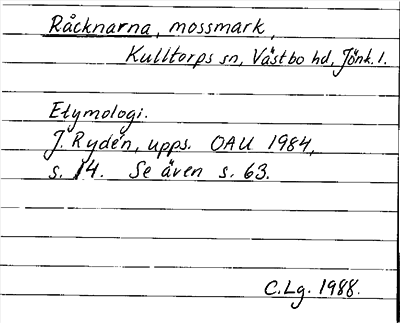 Råcknarna, mossmark,
Kulltorps sn, Västbo hd, Jönk. l.
Etymologi.
J. Rydén, upps. OAU 1984,
s. 14. Se även s. 63.
C.Lg. 1988.